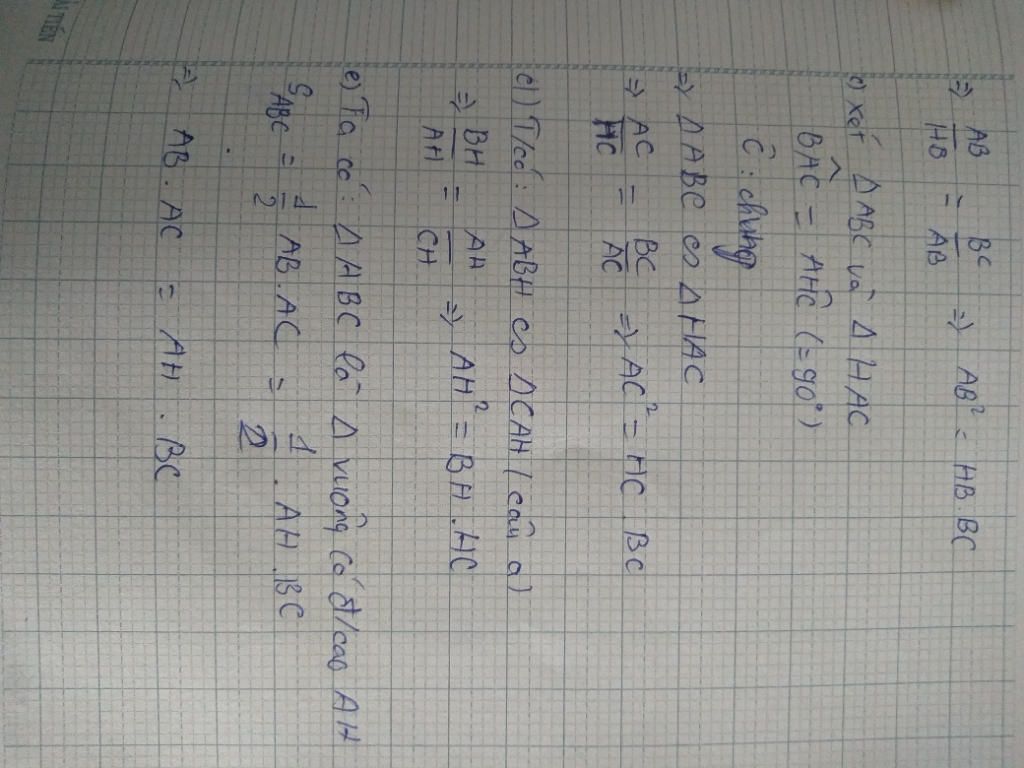 => AB/HB = BC/AB => AB² = HB.BC
c) Xét ΔABC và ΔHAC
BÂC = AĤC (=90°)
Ĉ: chung
=> ΔABC ∽ ΔHAC
=> AC/HC = BC/AC => AC² = HC.BC
d) T/có: ΔABH ∽ ΔCAH (câu a)
=> BH/AH = AH/CH => AH² = BH.HC
e) Ta có: ΔABC là Δ vuông có đ/cao AH
S_ABC = 1/2 AB.AC = 1/2 . AH.BC
=> AB.AC = AH.BC